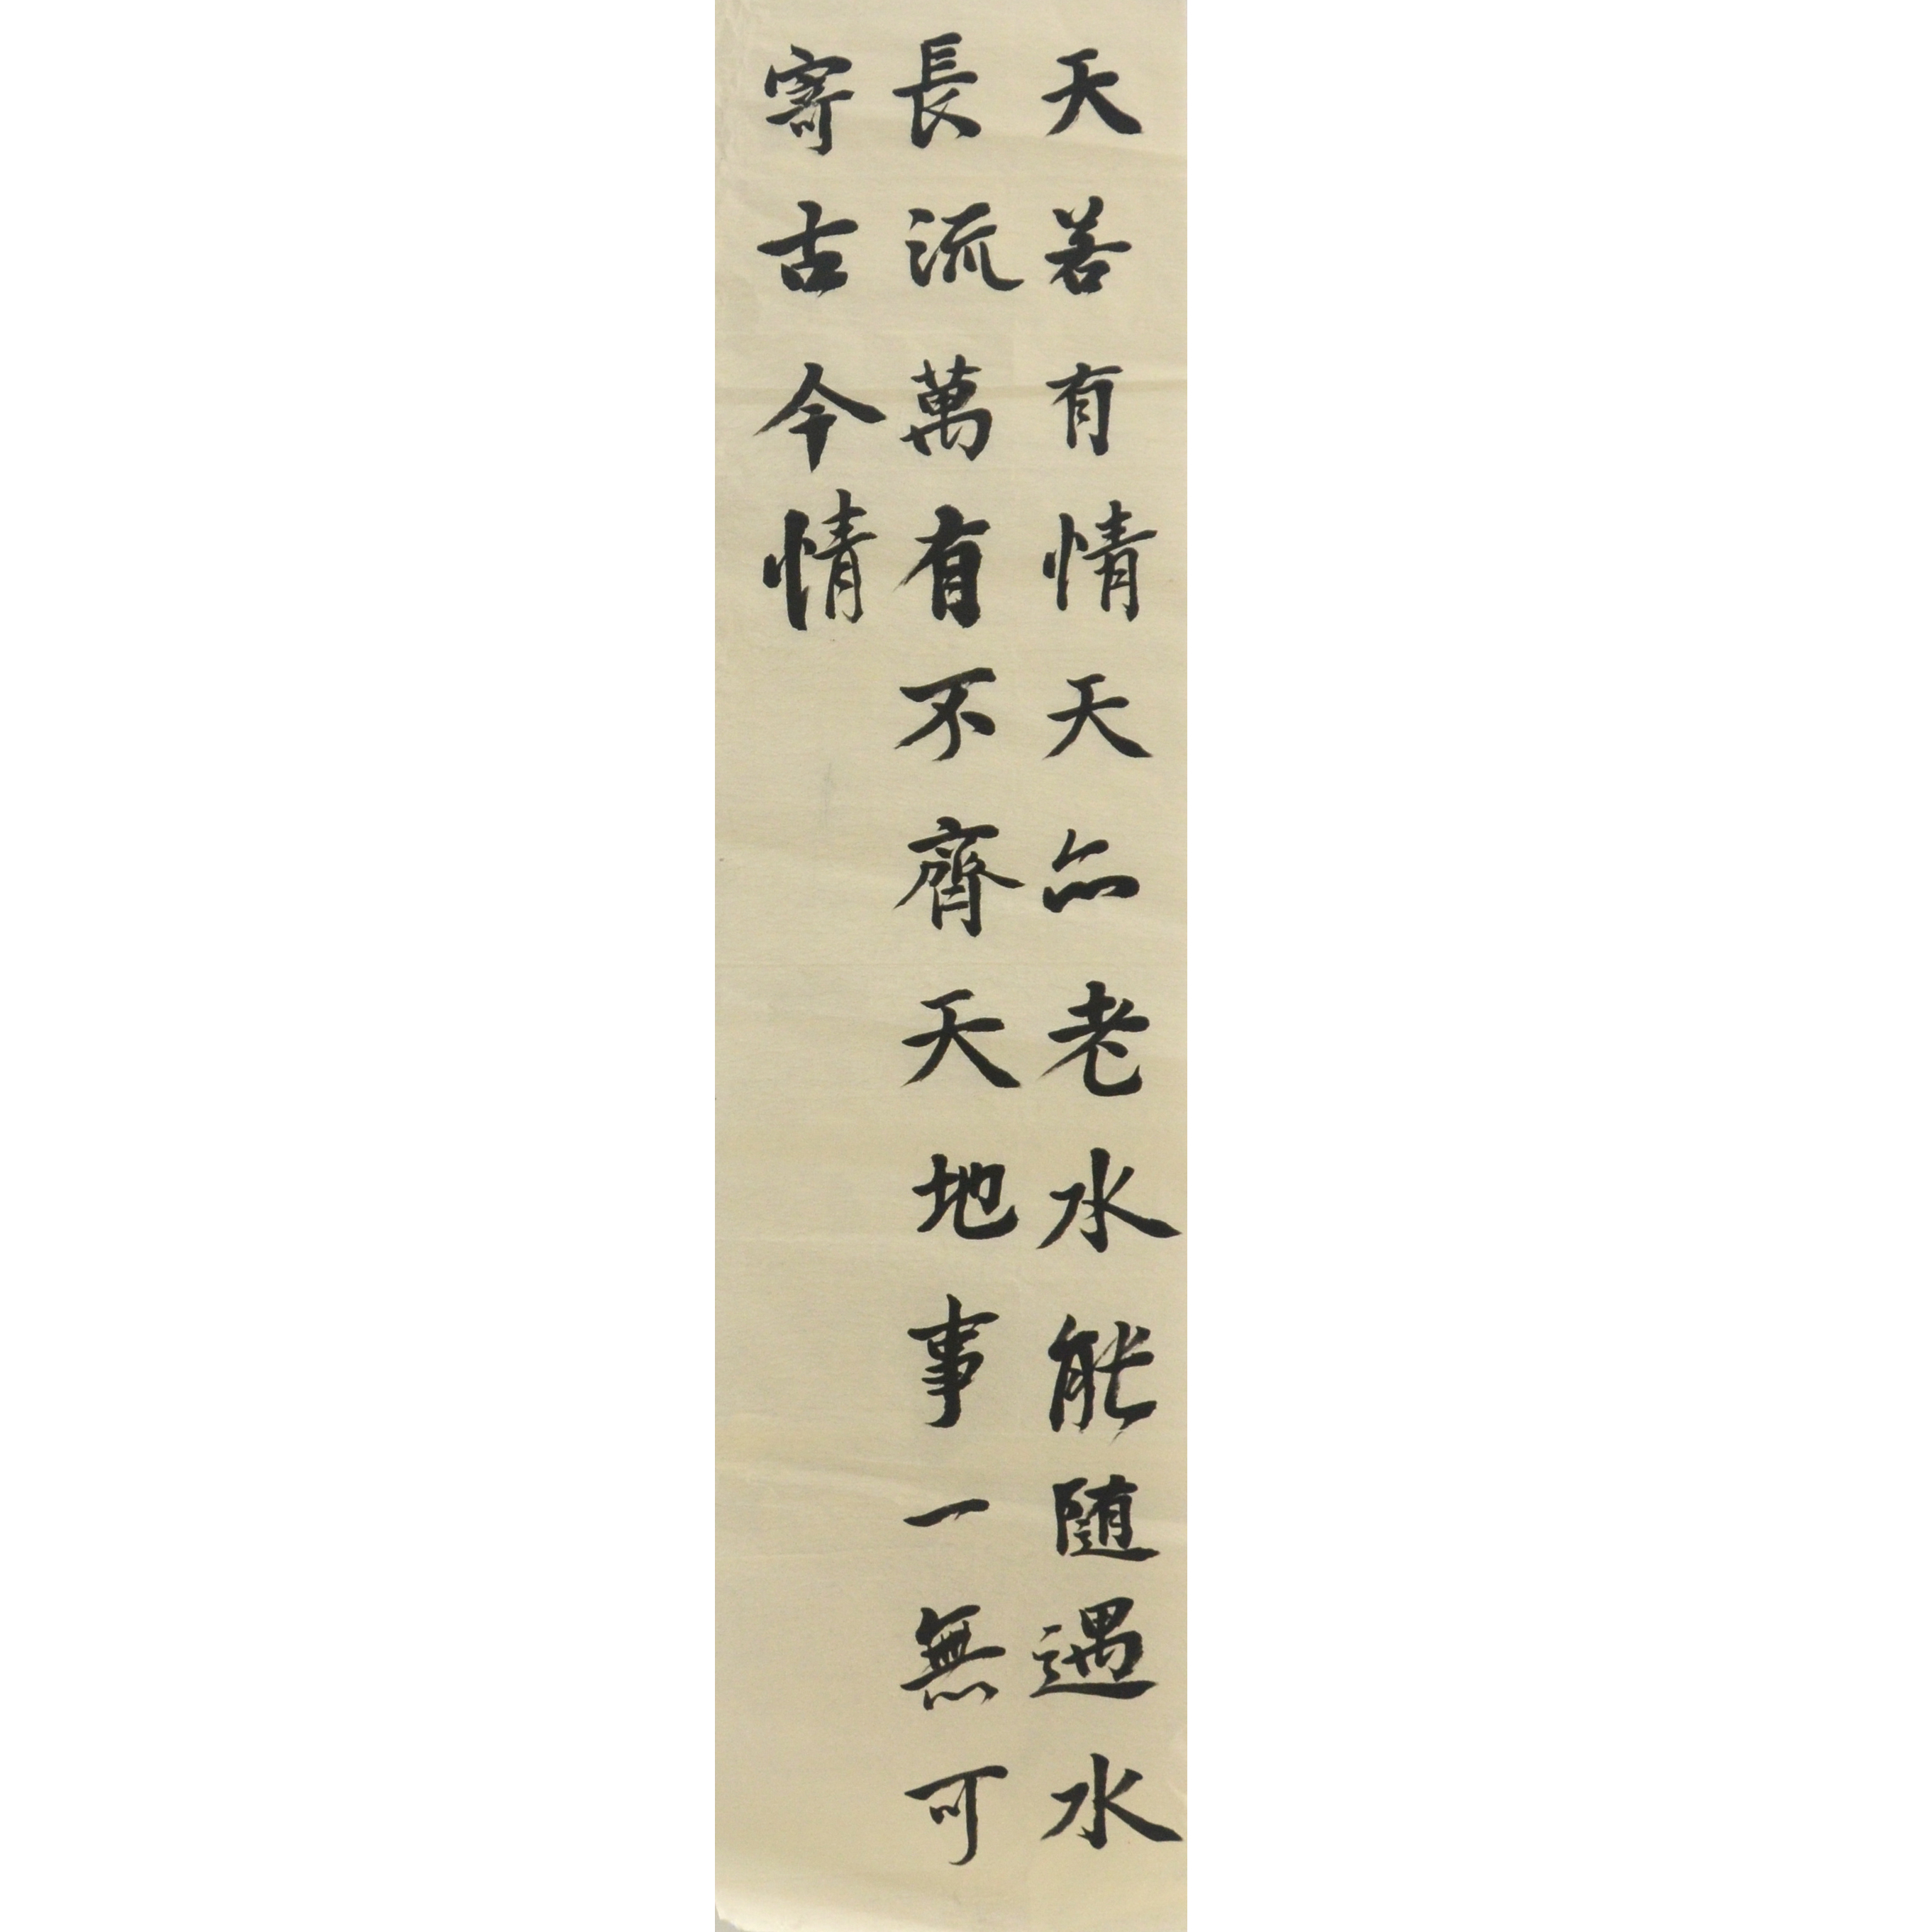 天若有情天亦老水能随遇水
長流萬有不齊天地事一無可
寄古今情